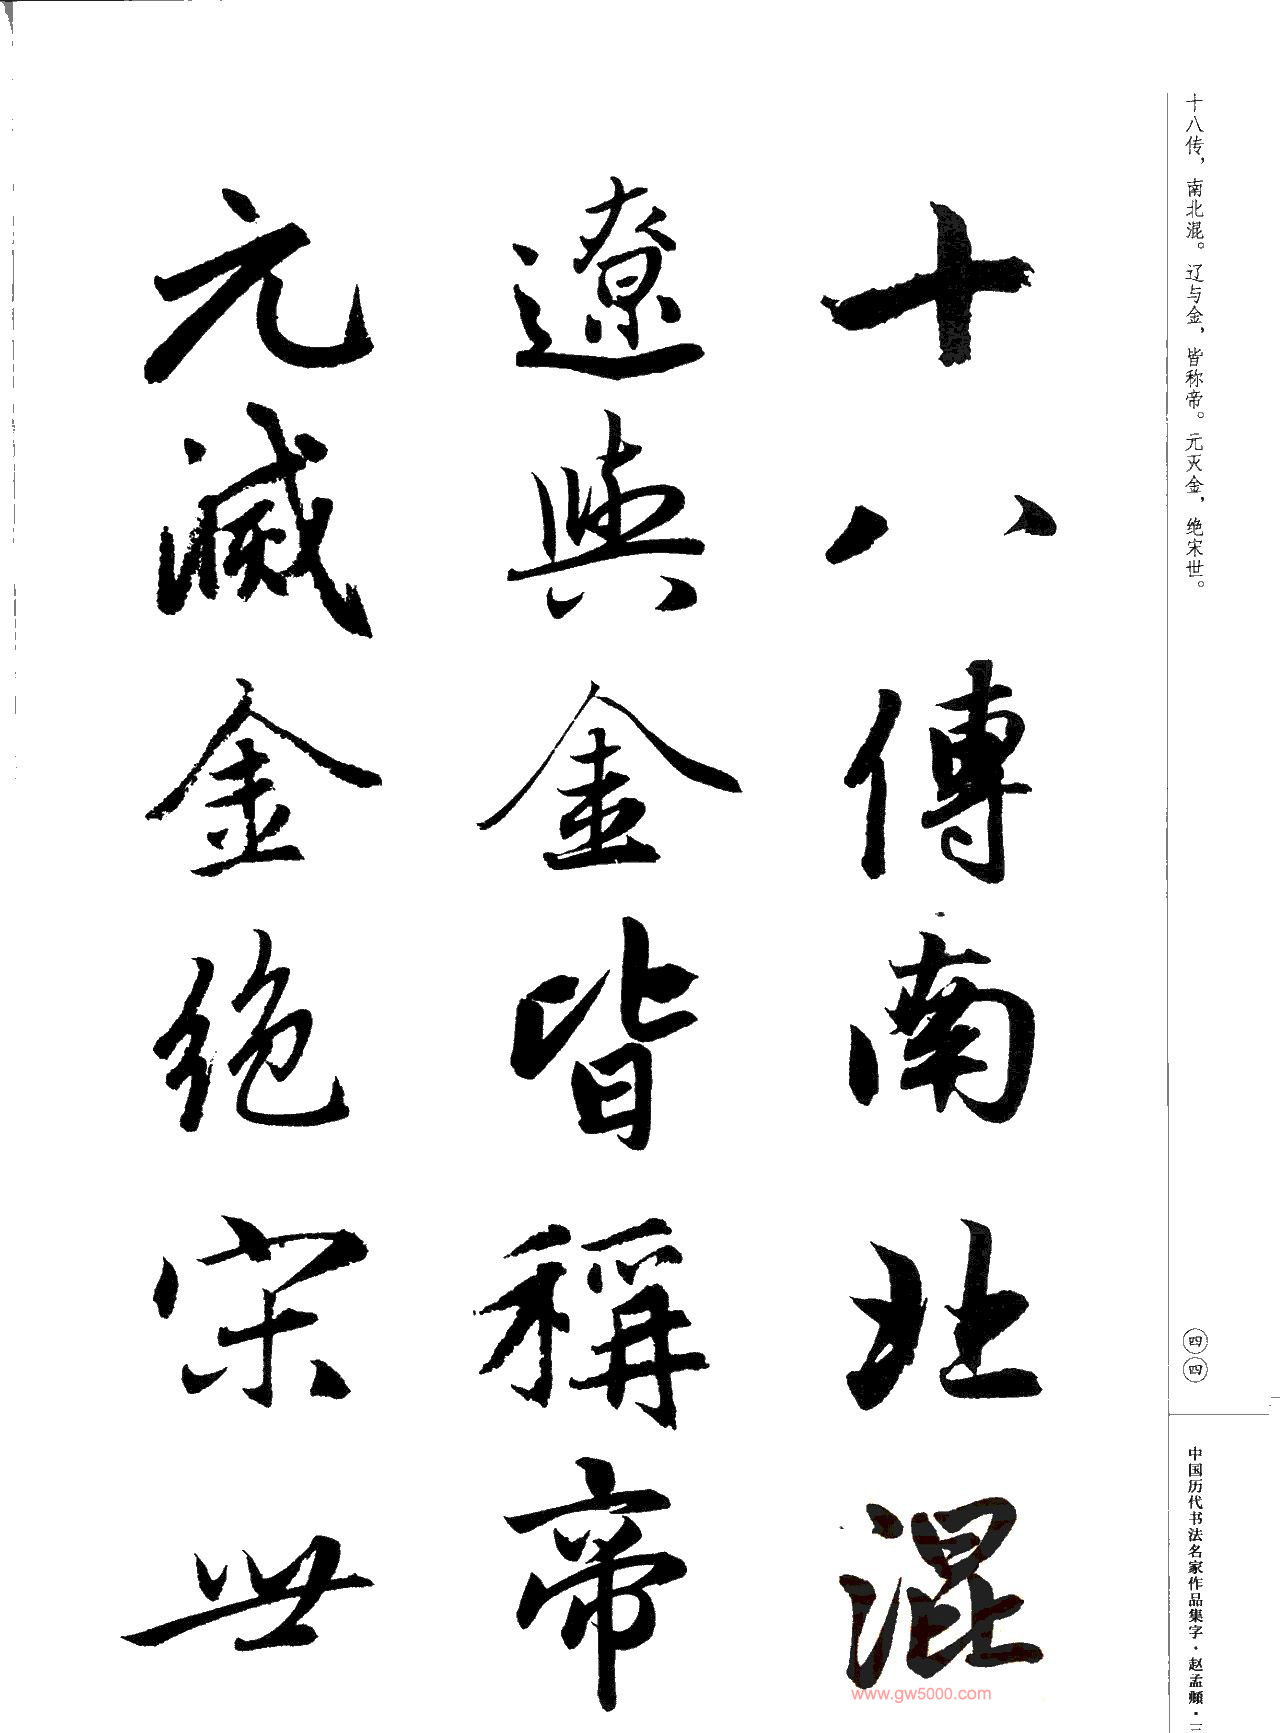 十八传，南北混。辽与金，皆称帝。元灭金，绝宋世。
四四
中国历代书法名家作品集字·赵孟頫·三
十八傳南北混
遼與金皆稱帝
元滅金絶宋世
www.gw5000.com